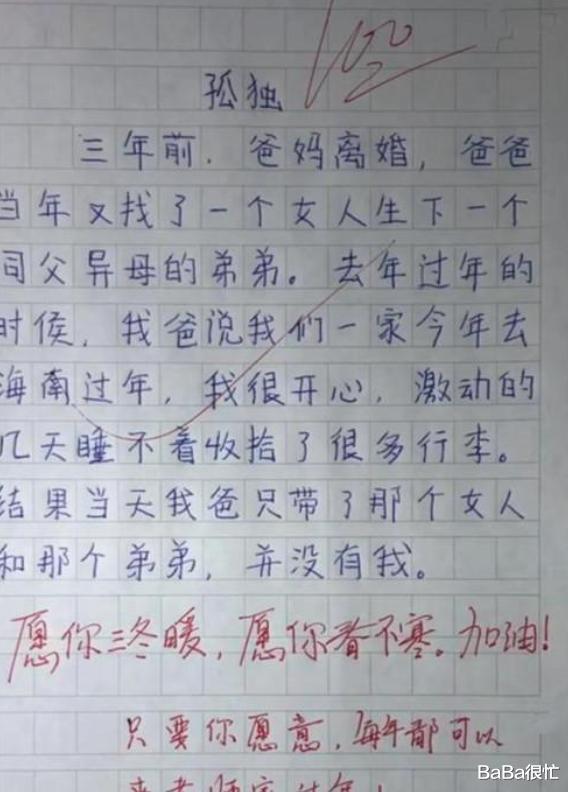 100
孤独
三年前.爸妈离婚,爸爸
当年又找了一个女人生下一个
同父异母的弟弟。去年过年的
时侯,我爸说我们一家今年去
海南过年,我很开心,激动的
几天睡不着收拾了很多行李。
结果当天我爸只带了那个女人
和那个弟弟,并没有我。
愿你三冬暖,愿你春不寒。加油!
只要你愿意,每年都可以
来老师家过年!
BaBa很忙